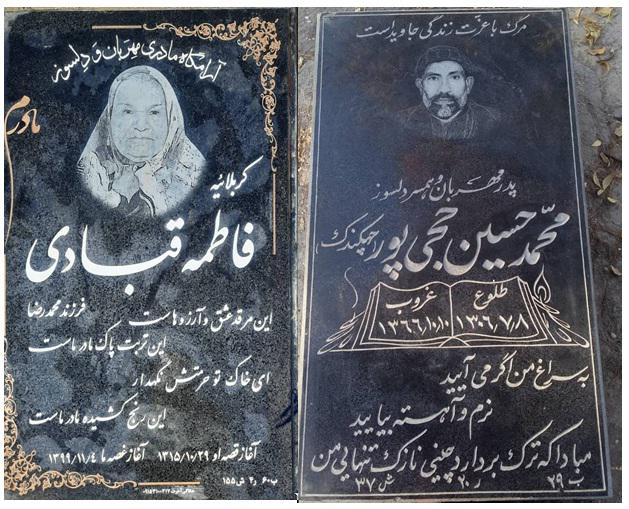 آرامگاه مادری مهربان و دلسوز
مادرم
کربلائیه
فاطمه قبادی
فرزند محمدرضا
این مرقد عشق و آرزوهاست
این تربت پاک مادر ماست
ای خاک تو حرمتش نگهدار
این رنج کشیده مادر ماست
آغاز قصه او ۱۳۱۵/۱۰/۲۹ آغاز غصه ما ۱۳۹۹/۱۱/۴
ب۶۰ ر۲ ش۱۵۵
مرگ با عزت زندگی جاوید است
پدر مهربان و همسر دلسوز
محمد حسین حجی پور
(چپکندک)
طلوع غروب
۱۳۰۶/۷/۸ ۱۳۶۶/۱۰/۱۰
به سراغ من اگر می آیید
نرم و آهسته بیایید
مبادا که ترک بردارد چینی نازک تنهایی من
ب۲۹ ر۲۰ ش۳۷